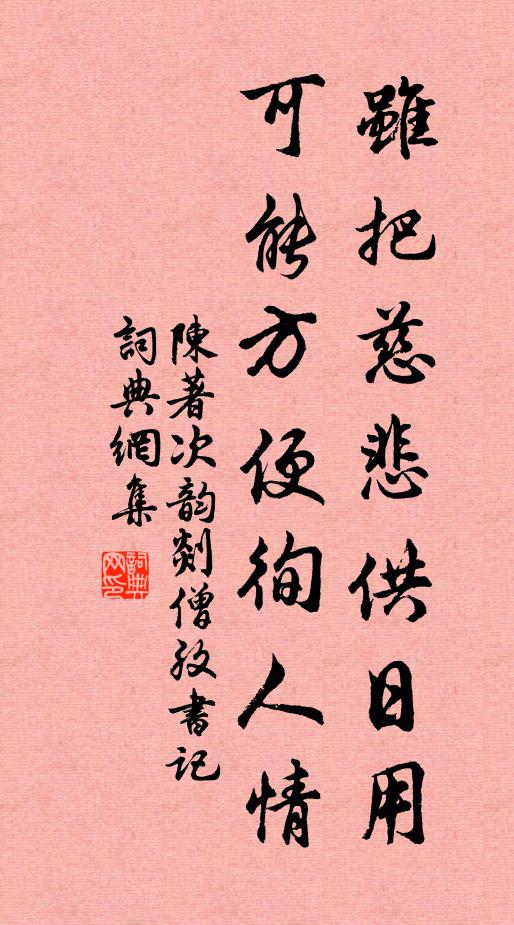 雖把慈悲供日用
可能方便徇人情
陳著次韵剡僧孜書記
詞典網集
詞典网印